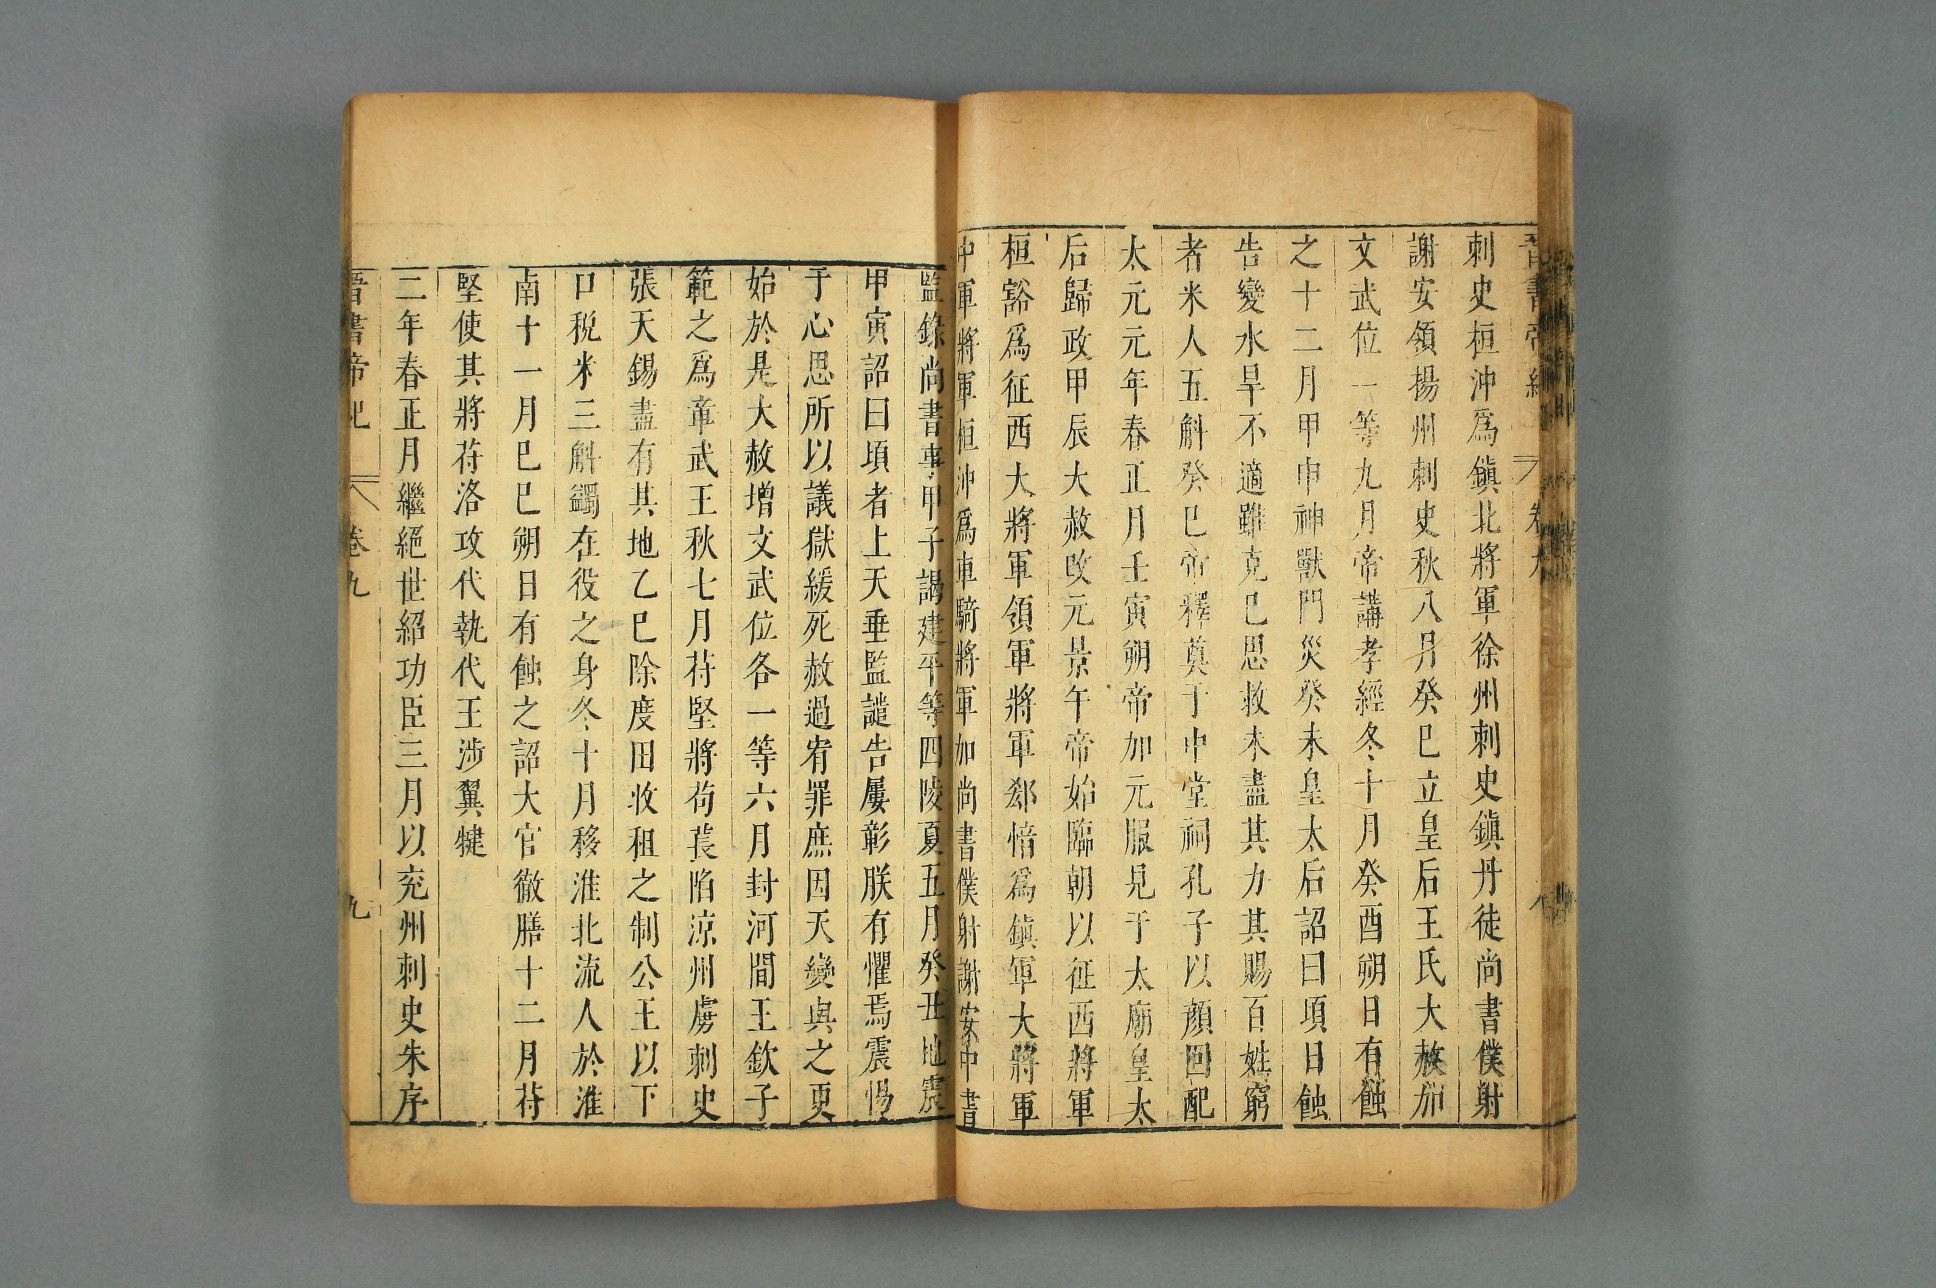 晉書帝紀 卷九 八
刺史桓沖爲鎭北將軍徐州刺史鎭丹徒尚書僕射
謝安領揚州刺史秋八月癸巳立皇后王氏大赦加
文武位一等九月帝講孝經冬十月癸酉朔日有蝕
之十二月甲申神獸門災癸未皇太后詔曰頃日蝕
告變水旱不適雖克己思救未盡其力其賜百姓窮
者米人五斛癸巳帝釋奠于中堂祠孔子以顏回配
太元元年春正月壬寅朔帝加元服見于太廟皇太
后歸政甲辰大赦改元景午帝始臨朝以征西將軍
桓豁爲征西大將軍領軍將軍郄愔爲鎭軍大將軍
中軍將軍桓沖爲車騎將軍加尚書僕射謝安中書
監錄尚書事甲子謁建平等四陵夏五月癸丑地震
甲寅詔曰頃者上天垂監譴告屢彰朕有懼焉震惕
于心思所以議獄緩死赦過宥罪庶因天變與之更
始於是大赦增文武位各一等六月封河間王欽子
範之爲章武王秋七月苻堅將苟萇陷涼州虜刺史
張天錫盡有其地乙巳除度田收租之制公王以下
口稅米三斛蠲在役之身冬十月移淮北流人於淮
南十一月己巳朔日有蝕之詔大官徹膳十二月苻
堅使其將苻洛攻代執代王涉翼犍
二年春正月繼絕世紹功臣三月以兖州刺史朱序
晉書帝紀 卷九 九